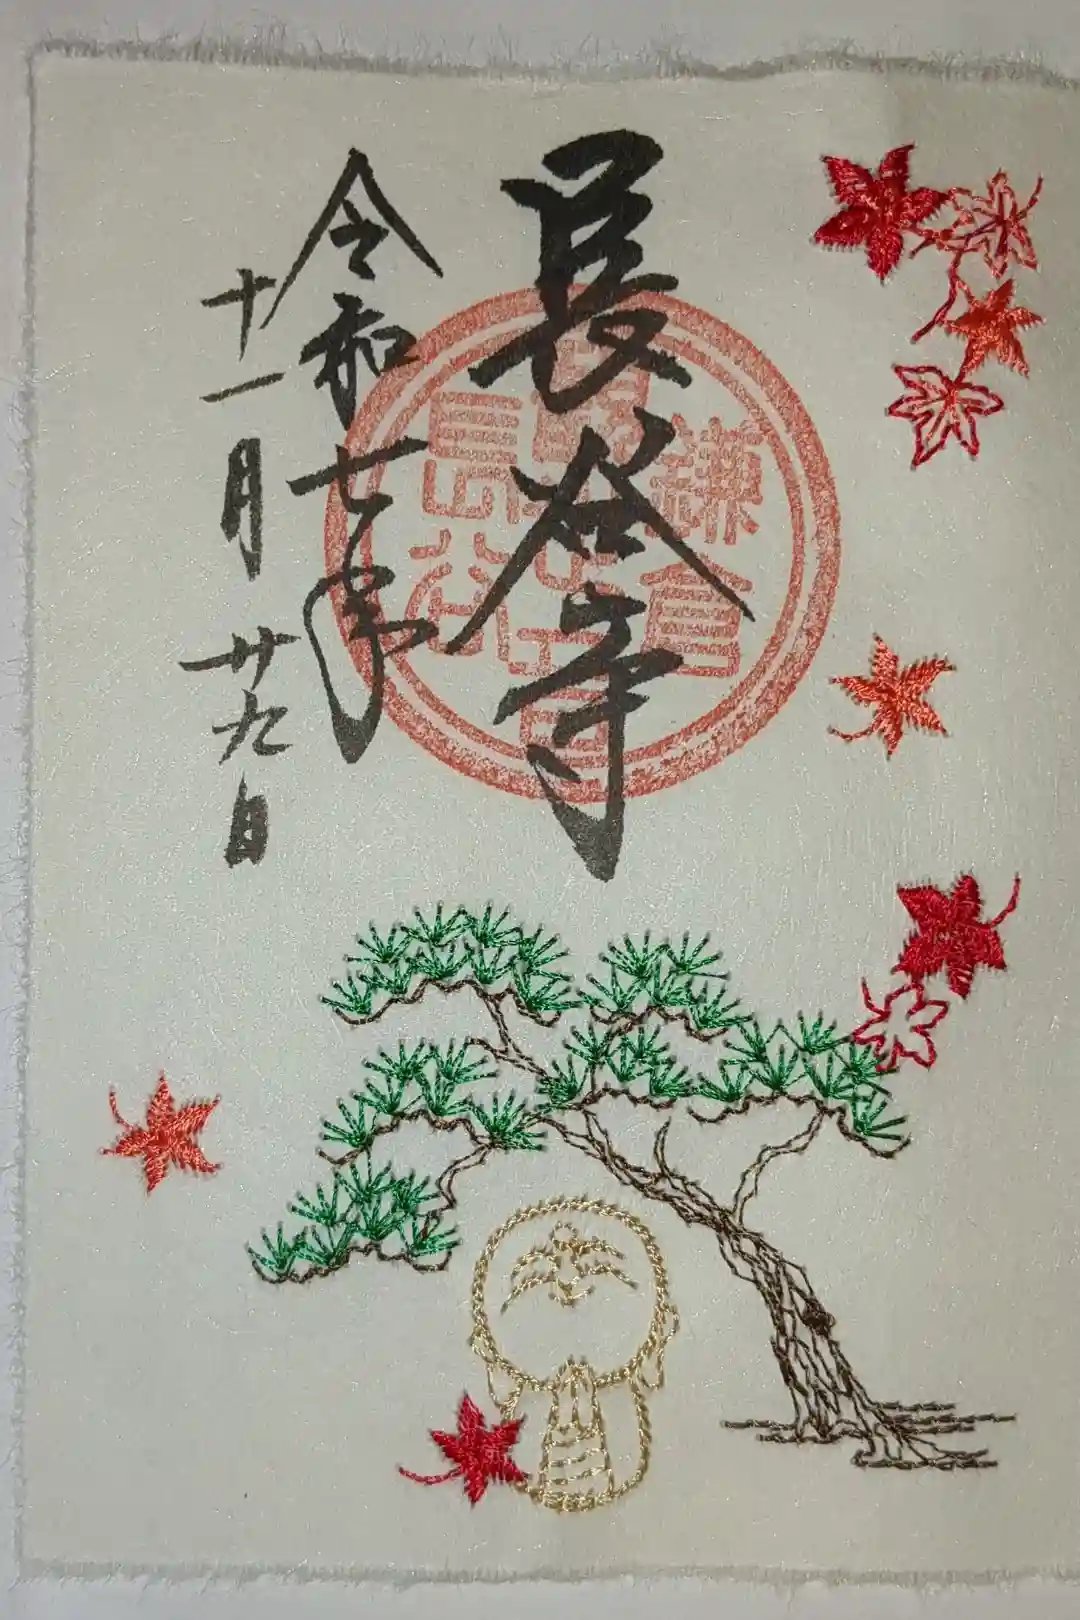 長谷寺
令和七年
十一月廿九日
鎌倉